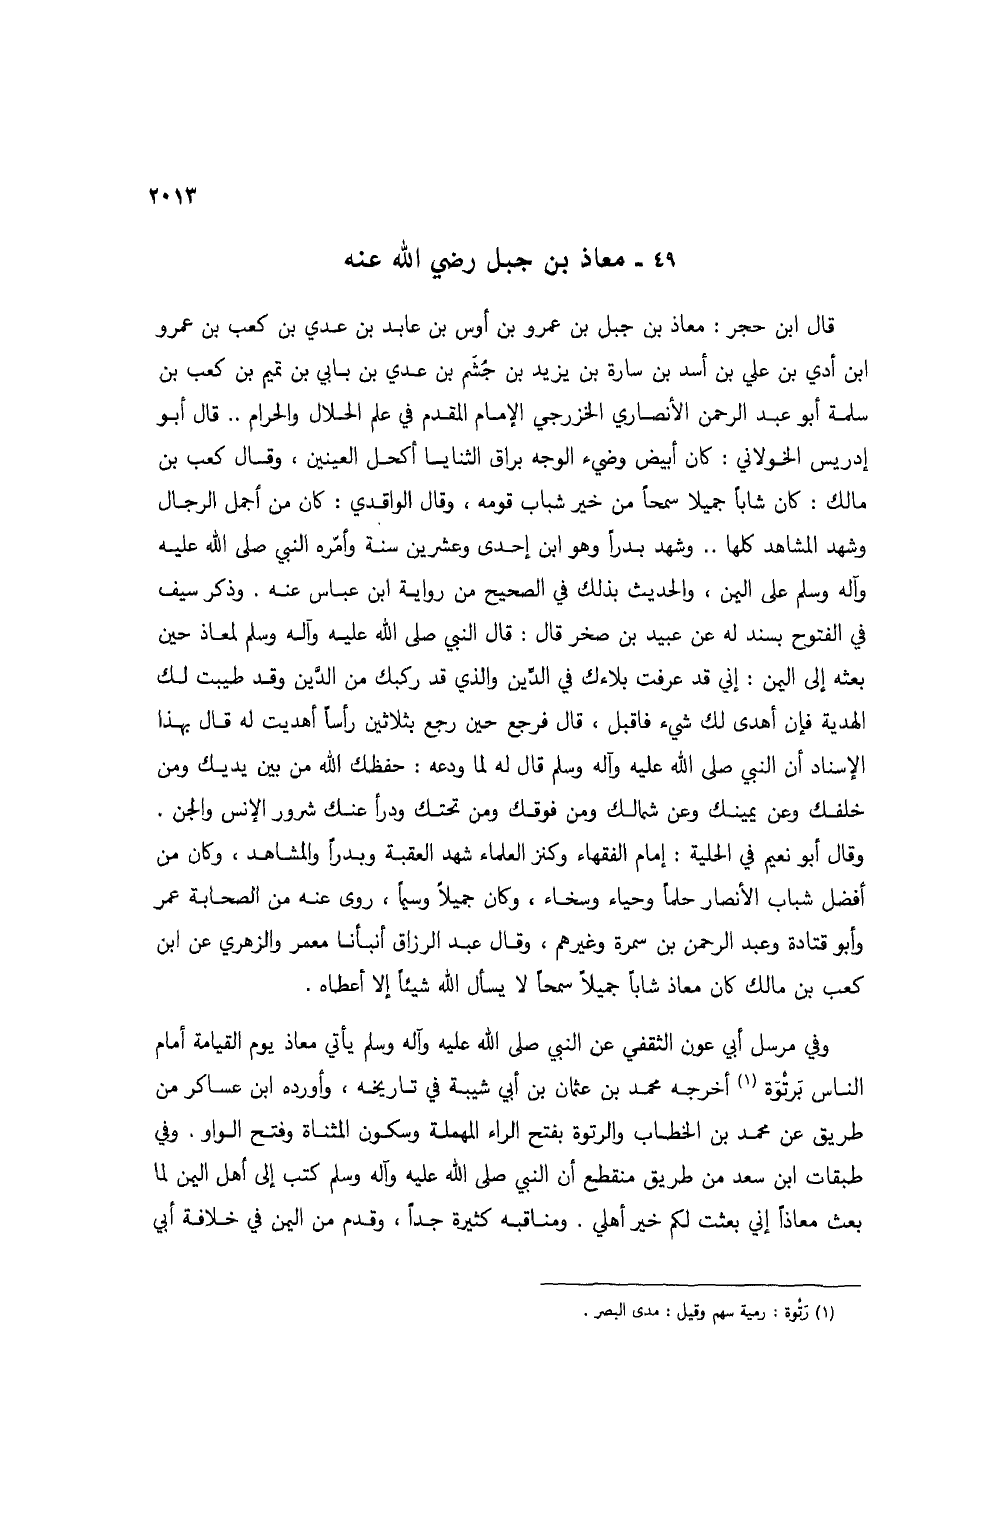 ٢٠١٣
٤٩ - معاذ بن جبل رضي الله عنه
قال ابن حجر : معاذ بن جبل بن عمرو بن أوس بن عابد بن عدي بن كعب بن عمرو
ابن أدي بن علي بن أسد بن سارة بن يزيد بن جُشَم بن عدي بن بابي بن تميم بن كعب بن
سلمة أبو عبد الرحمن الأنصاري الخزرجي الإمام المقدم في علم الحلال والحرام .. قال أبو
إدريس الخولاني : كان أبيض وضيء الوجه براق الثنايا أكحل العينين ، وقال كعب بن
مالك : كان شاباً جميلا سمحاً من خير شباب قومه ، وقال الواقدي : كان من أجمل الرجال
وشهد المشاهد كلها .. وشهد بدراً وهو ابن إحدى وعشرين سنة وأمّره النبي صلى الله عليه
وآله وسلم على اليمن ، والحديث بذلك في الصحيح من رواية ابن عباس عنه . وذكر سيف
في الفتوح بسند له عن عبيد بن صخر قال : قال النبي صلى الله عليه وآله وسلم لمعاذ حين
بعثه إلى اليمن : إني قد عرفت بلاءك في الدِّين والذي قد ركبك من الدَّين وقد طيبت لك
الهدية فإن أهدى لك شيء فاقبل ، قال فرجع حين رجع بثلاثين رأساً أهديت له قال بهذا
الإسناد أن النبي صلى الله عليه وآله وسلم قال له لما ودعه : حفظك الله من بين يديك ومن
خلفك وعن يمينك وعن شمالك ومن فوقك ومن تحتك ودرأ عنك شرور الإنس والجن .
وقال أبو نعيم في الحلية : إمام الفقهاء وكنز العلماء شهد العقبة وبدراً والمشاهد ، وكان من
أفضل شباب الأنصار حلماً وحياء وسخاء ، وكان جميلاً وسيماً ، روى عنه من الصحابة عمر
وأبو قتادة وعبد الرحمن بن سمرة وغيرهم ، وقال عبد الرزاق أنبأنا معمر والزهري عن ابن
كعب بن مالك كان معاذ شاباً جميلاً سمحاً لا يسأل الله شيئاً إلا أعطاه .
وفي مرسل أبي عون الثقفي عن النبي صلى الله عليه وآله وسلم يأتي معاذ يوم القيامة أمام
الناس بَرتْوَة (١) أخرجه محمد بن عثمان بن أبي شيبة في تاريخه ، وأورده ابن عساكر من
طريق عن محمد بن الخطاب والرتوة بفتح الراء المهملة وسكون المثناة وفتح الواو . وفي
طبقات ابن سعد من طريق منقطع أن النبي صلى الله عليه وآله وسلم كتب إلى أهل اليمن لما
بعث معاذاً إني بعثت لكم خير أهلي . ومناقبه كثيرة جداً ، وقدم من اليمن في خلافة أبي
(١) رَتْوة : رمية سهم وقيل : مدى البصر .